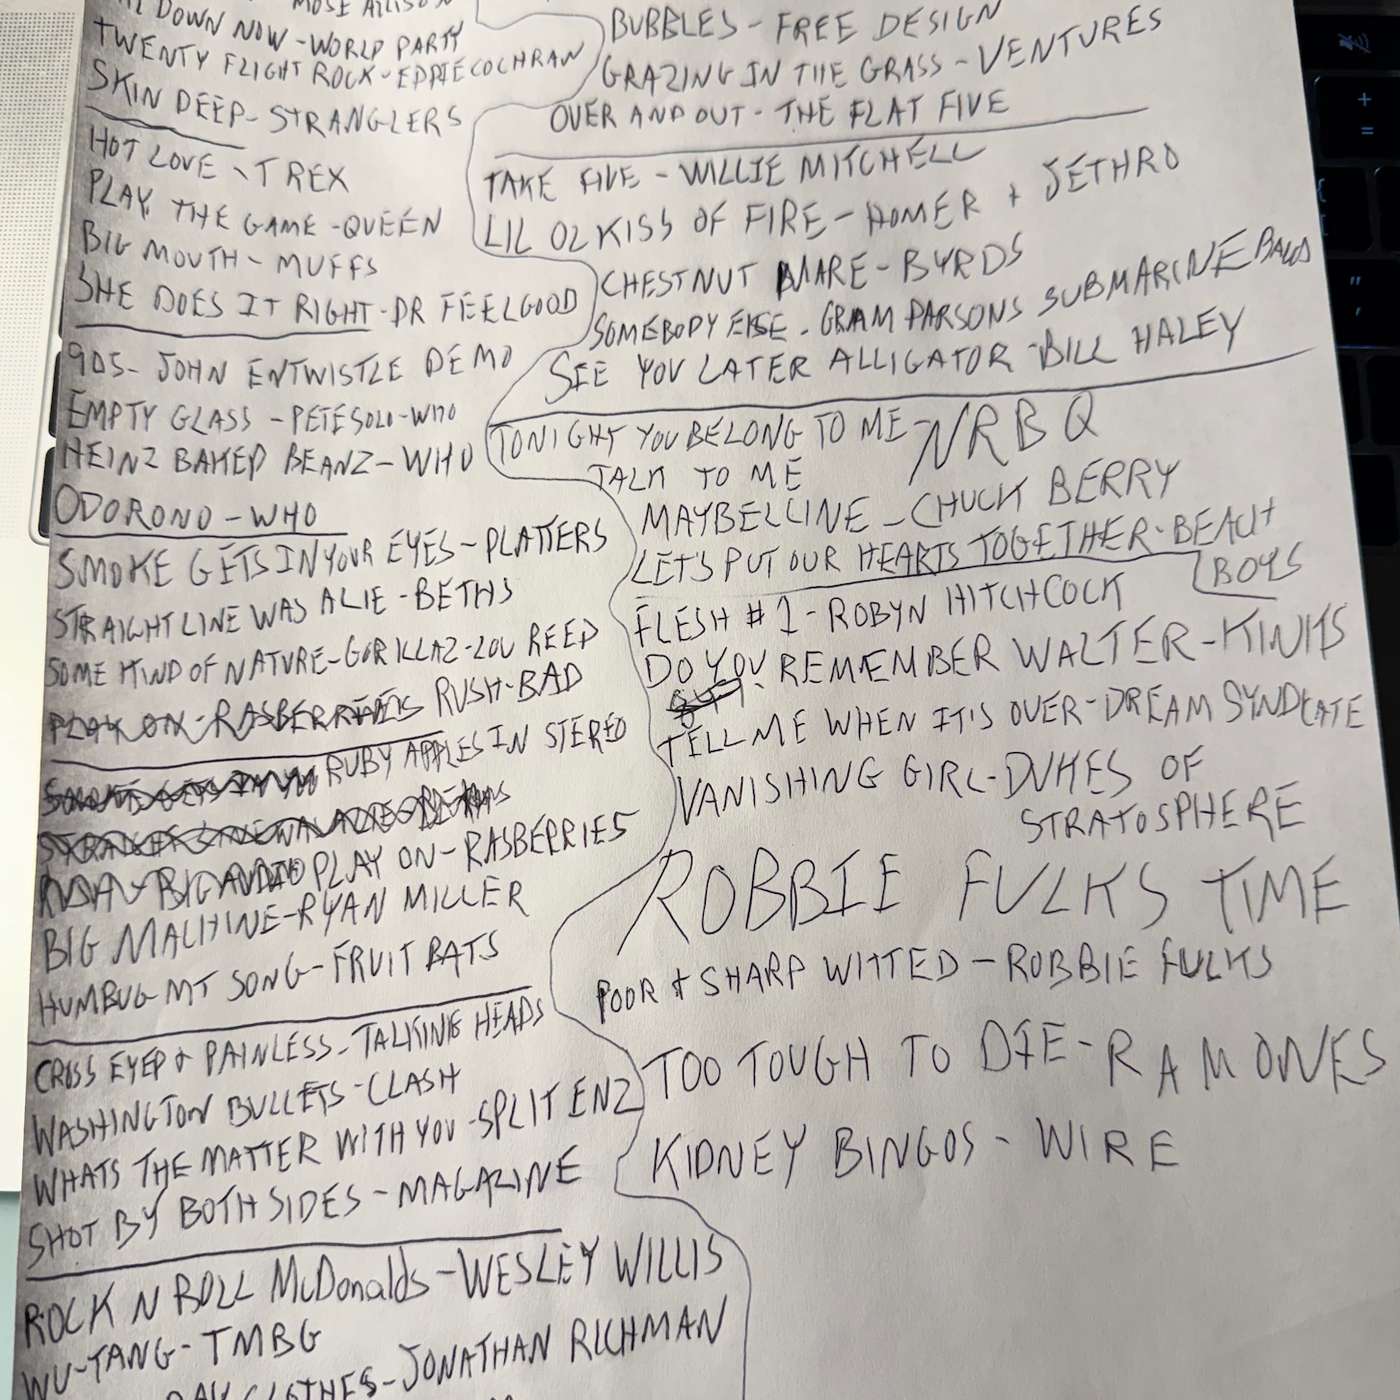 MOSE ALLISON
DOWN NOW - WORLD PARTY
TWENTY FLIGHT ROCK - EDDIE COCHRAN
SKIN DEEP - STRANGLERS
HOT LOVE - T REX
PLAY THE GAME - QUEEN
BIG MOUTH - MUFFS
SHE DOES IT RIGHT - DR FEELGOOD
905 - JOHN ENTWISTLE DEMO
EMPTY GLASS - PETE SOLO - WHO
HEINZ BAKED BEANZ - WHO
ODORONO - WHO
SMOKE GETS IN YOUR EYES - PLATTERS
STRAIGHT LINE WAS A LIE - BETHS
SOME KIND OF NATURE - GORILLAZ - LOU REED
PLAY ON - RASBERRIES RUSH - BAD
RUBY APPLES IN STEREO
RUSH - BIG AUDIO PLAY ON - RASBERRIES
BIG MACHINE - RYAN MILLER
HUMBUG MT SONG - FRUIT BATS
CROSS EYED + PAINLESS - TALKING HEADS
WASHINGTON BULLETS - CLASH
WHATS THE MATTER WITH YOU - SPLIT ENZ
SHOT BY BOTH SIDES - MAGAZINE
ROCK N ROLL McDonalds - WESLEY WILLIS
WU-TANG - TMBG
CLOTHES - JONATHAN RICHMAN
BUBBLES - FREE DESIGN
GRAZING IN THE GRASS - VENTURES
OVER AND OUT - THE FLAT FIVE
TAKE FIVE - WILLIE MITCHELL
LIL OL KISS OF FIRE - HOMER + JETHRO
CHESTNUT MARE - BYRDS
SOMEBODY ELSE - GRAM PARSONS SUBMARINE BAND
SEE YOU LATER ALLIGATOR - BILL HALEY
TONIGHT YOU BELONG TO ME - NRBQ
TALK TO ME
MAYBELLINE - CHUCK BERRY
LET'S PUT OUR HEARTS TOGETHER - BEACH
BOYS
FLESH #1 - ROBYN HITCHCOCK
DO YOU REMEMBER WALTER - KINKS
TELL ME WHEN IT'S OVER - DREAM SYNDICATE
VANISHING GIRL - DUKES OF
STRATOSPHERE
ROBBIE FULKS TIME
POOR + SHARP WITTED - ROBBIE FULKS
TOO TOUGH TO DIE - RAMONES
KIDNEY BINGOS - WIRE